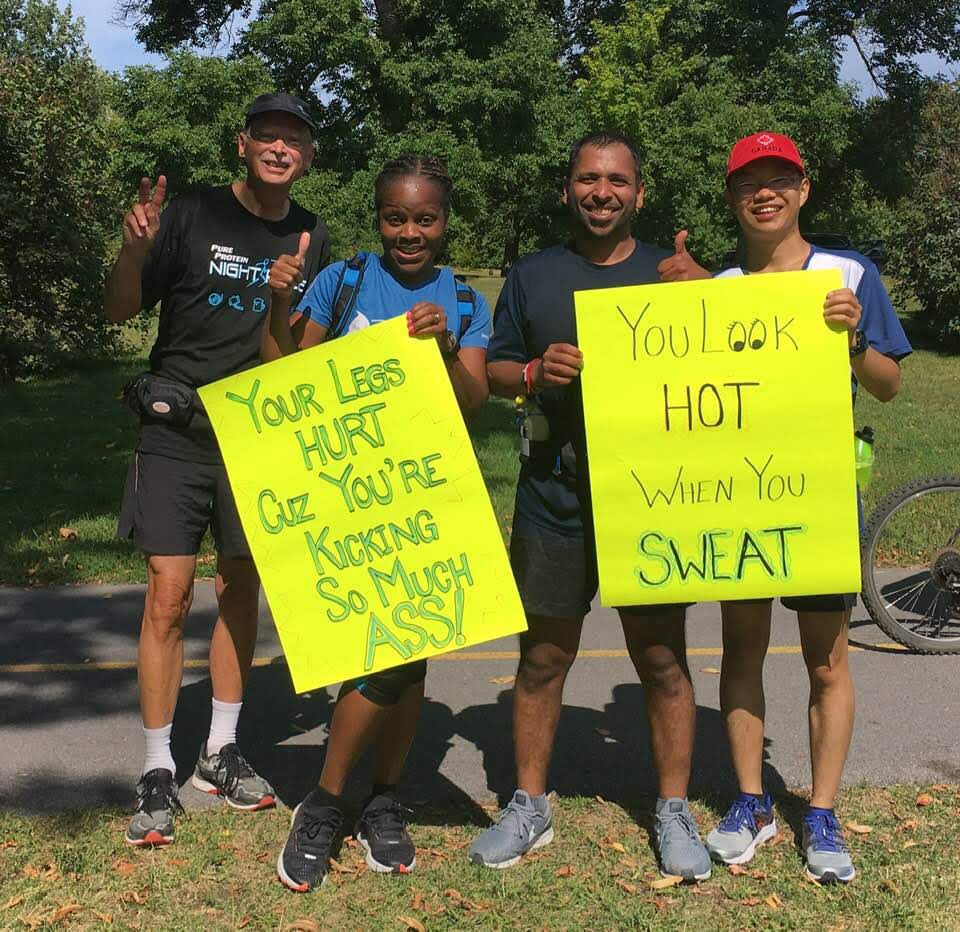 PURE
PROTEIN
NIGHT
CANADA
YOUR LEGS
HURT
CUZ YOU'RE
KICKING
SO MUCH
ASS!
YOU LOOK
HOT
WHEN YOU
SWEAT